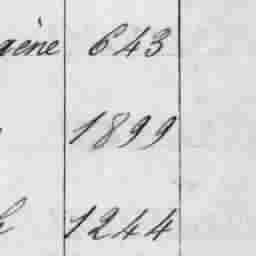 gène 643
1899
1244